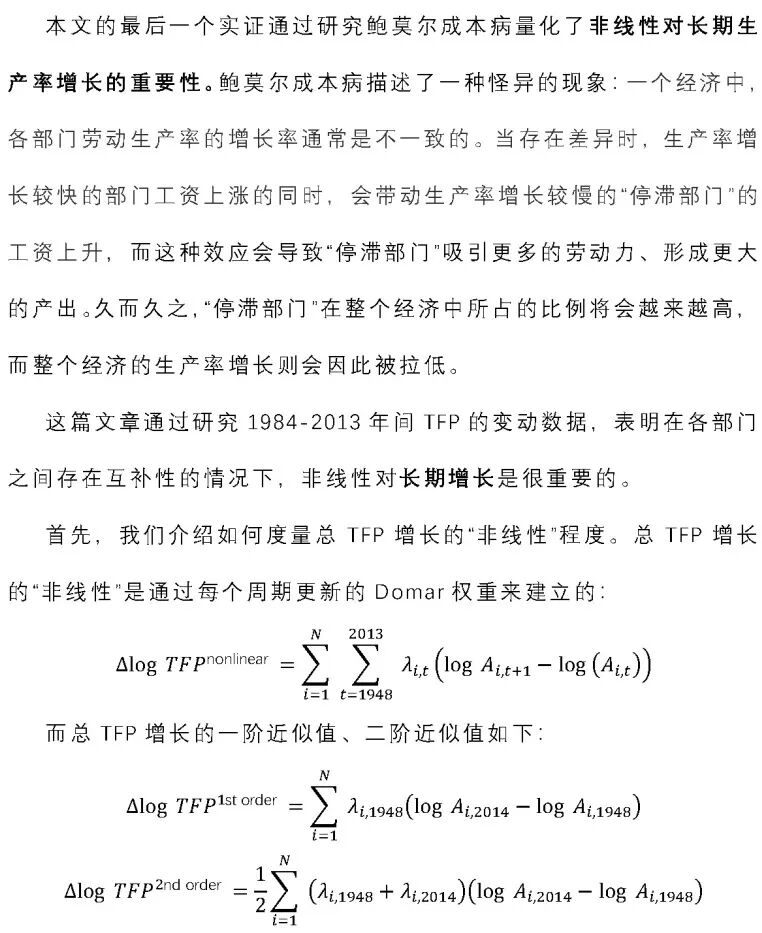 本文的最后一个实证通过研究鲍莫尔成本病量化了非线性对长期生
产率增长的重要性。鲍莫尔成本病描述了一种怪异的现象：一个经济中，
各部门劳动生产率的增长率通常是不一致的。当存在差异时，生产率增
长较快的部门工资上涨的同时，会带动生产率增长较慢的“停滞部门”的
工资上升，而这种效应会导致“停滞部门”吸引更多的劳动力、形成更大
的产出。久而久之，“停滞部门”在整个经济中所占的比例将会越来越高，
而整个经济的生产率增长则会因此被拉低。
这篇文章通过研究 1984-2013 年间 TFP 的变动数据，表明在各部门
之间存在互补性的情况下，非线性对长期增长是很重要的。
首先，我们介绍如何度量总 TFP 增长的“非线性”程度。总 TFP 增长
的“非线性”是通过每个周期更新的 Domar 权重来建立的：
Δlog TFP^nonlinear = ∑_{i=1}^{N} ∑_{t=1948}^{2013} λ_{i,t} (log A_{i,t+1} − log (A_{i,t}))
而总 TFP 增长的一阶近似值、二阶近似值如下：
Δlog TFP^1st order = ∑_{i=1}^{N} λ_{i,1948}(log A_{i,2014} − log A_{i,1948})
Δlog TFP^2nd order = 1/2 ∑_{i=1}^{N} (λ_{i,1948} + λ_{i,2014})(log A_{i,2014} − log A_{i,1948})